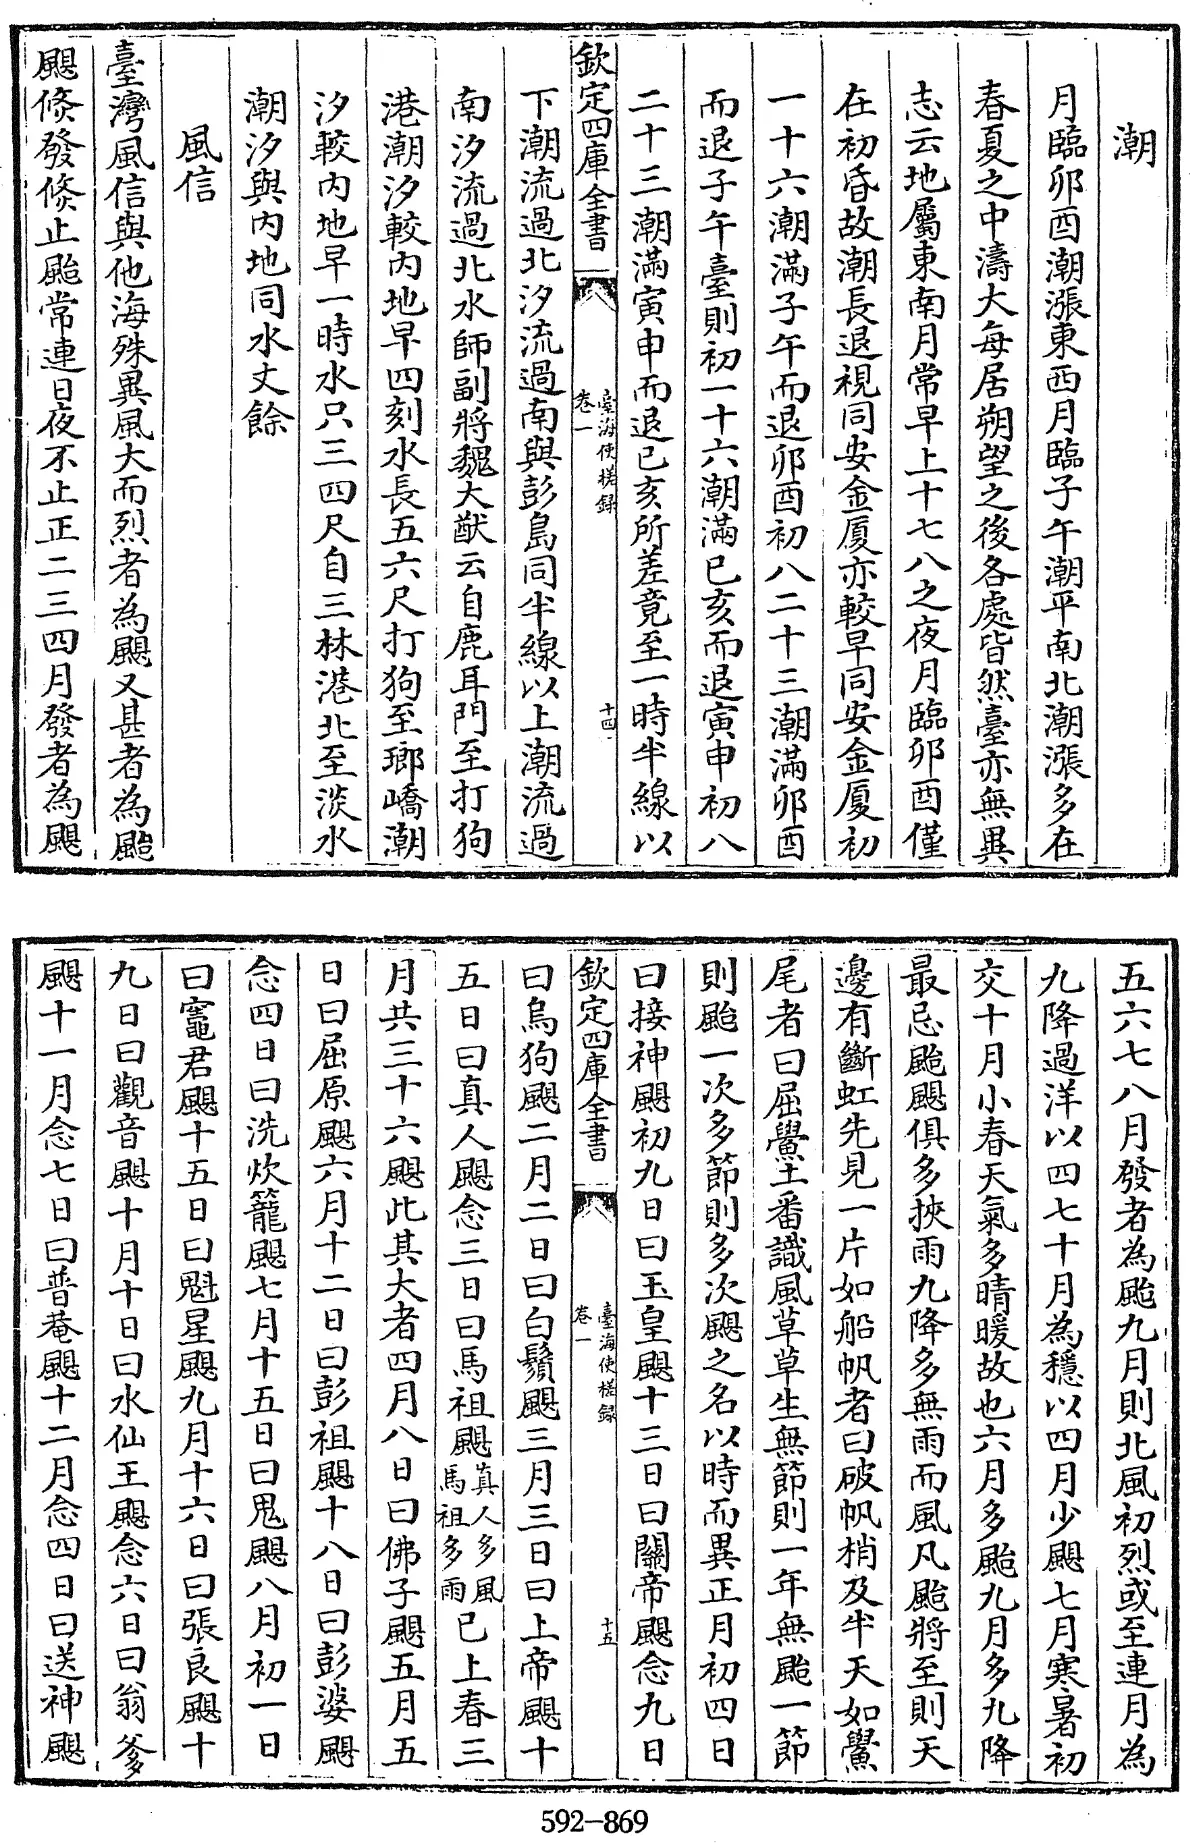 潮
月臨卯酉潮漲東西月臨子午潮平南北潮漲多在
春夏之中濤大每居朔望之後各處皆然臺亦無異
志云地屬東南月常早上十七八之夜月臨卯酉僅
在初昏故潮長退視同安金厦亦較早同安金厦初
一十六潮滿子午而退卯酉初八二十三潮滿卯酉
而退子午臺則初一十六潮滿巳亥而退寅申初八
二十三潮滿寅申而退巳亥所差竟至一時半線以
欽定四庫全書
臺海使槎錄
卷一
十四
下潮流過北汐流過南與彭島同半線以上潮流過
南汐流過北水師副將魏大猷云自鹿耳門至打狗
港潮汐較內地早四刻水長五六尺打狗至瑯嶠潮
汐較內地早一時水只三四尺自三林港北至淡水
潮汐與內地同水丈餘
風信
臺灣風信與他海殊異風大而烈者為颶又甚者為颱
颶倏發倏止颱常連日夜不止正二三四月發者為颶
五六七八月發者為颱九月則北風初烈或至連月為
九降過洋以四七十月為穩以四月少颶七月寒暑初
交十月小春天氣多晴暖故也六月多颱九月多九降
最忌颱颶俱多挾雨九降多無雨而風凡颱將至則天
邊有斷虹先見一片如船帆者曰破帆梢及半天如鱟
尾者曰屈鱟土番識風草草生無節則一年無颱一節
則颱一次多節則多次颶之名以時而異正月初四日
曰接神颶初九日曰玉皇颶十三日曰關帝颶念九日
欽定四庫全書
臺海使槎錄
卷一
十五
曰烏狗颶二月二日曰白鬚颶三月三日曰上帝颶十
五日曰真人颶念三日曰馬祖颶真人多風馬祖多雨已上春三
月共三十六颶此其大者四月八日曰佛子颶五月五
日曰屈原颶六月十二日曰彭祖颶十八日曰彭婆颶
念四日曰洗炊籠颶七月十五日曰鬼颶八月初一日
曰竈君颶十五日曰魁星颶九月十六日曰張良颶十
九日曰觀音颶十月十日曰水仙王颶念六日曰翁爹
颶十一月念七日曰普菴颶十二月念四日曰送神颶
592-869